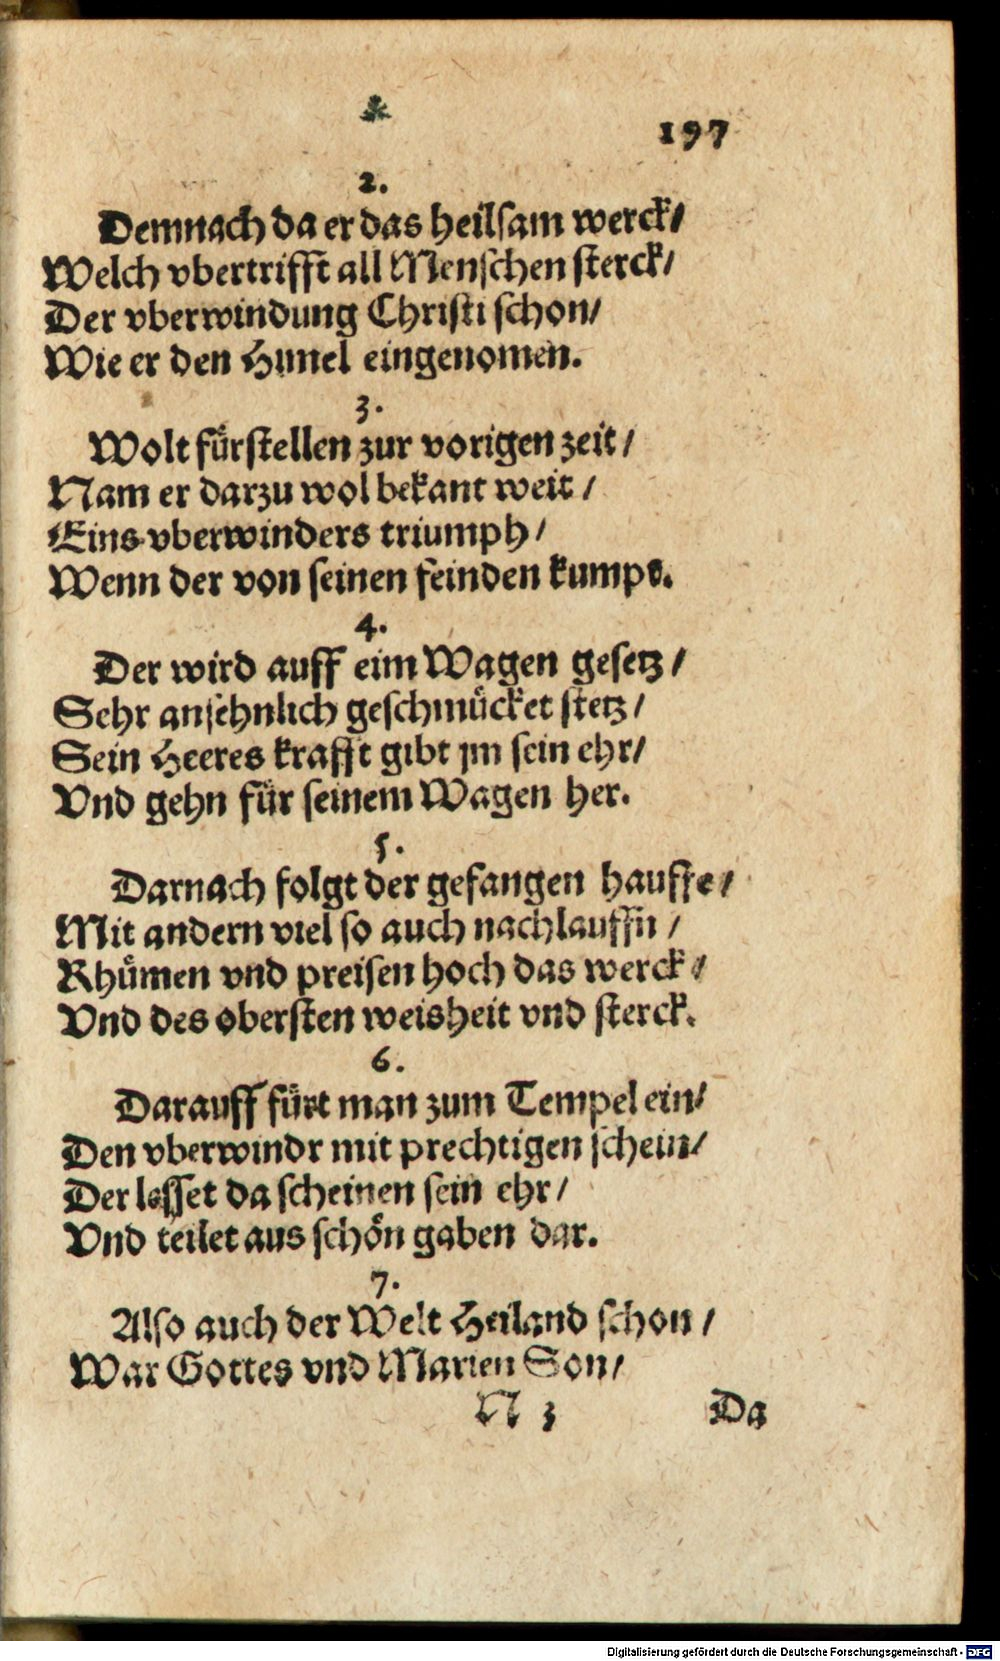 197
2.
Demnach da er das heilsam werck/
Welch vbertrifft all Menschen sterck/
Der vberwindung Christi schon/
Wie er den Himel eingenomen.
3.
Wolt fürstellen zur vorigen zeit/
Nam er darzu wol bekant weit/
Eins vberwinders triumph/
Wenn der von seinen feinden kumps.
4.
Der wird auff eim Wagen gesetz/
Sehr ansehnlich geschmücket stetz/
Sein Heeres krafft gibt jm sein ehr/
Vnd gehn für seinem Wagen her.
5.
Darnach folgt der gefangen hauffe/
Mit andern viel so auch nachlauffn/
Rhümen vnd preisen hoch das werck/
Vnd des obersten weisheit vnd sterck.
6.
Darauff fürt man zum Tempel ein/
Den vberwindr mit prechtigen schein/
Der lesset da scheinen sein ehr/
Vnd teilet aus schön gaben dar.
7.
Also auch der Welt Heiland schon/
War Gottes vnd Marien Son/
N 3 Da
Digitalisierung gefördert durch die Deutsche Forschungsgemeinschaft - DFG